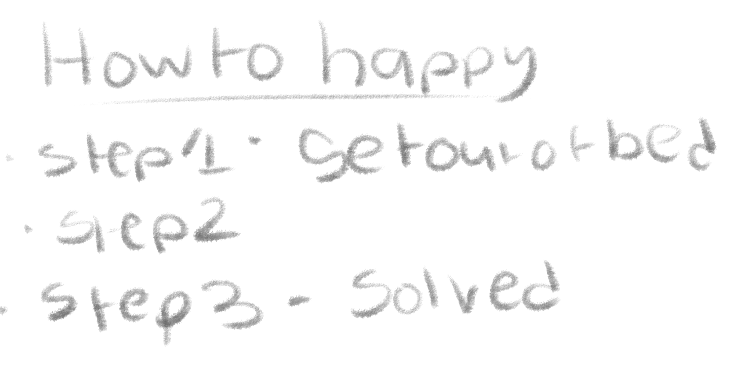 How to happy
· step 1 - Get out of bed
· step 2
· step 3 - Solved